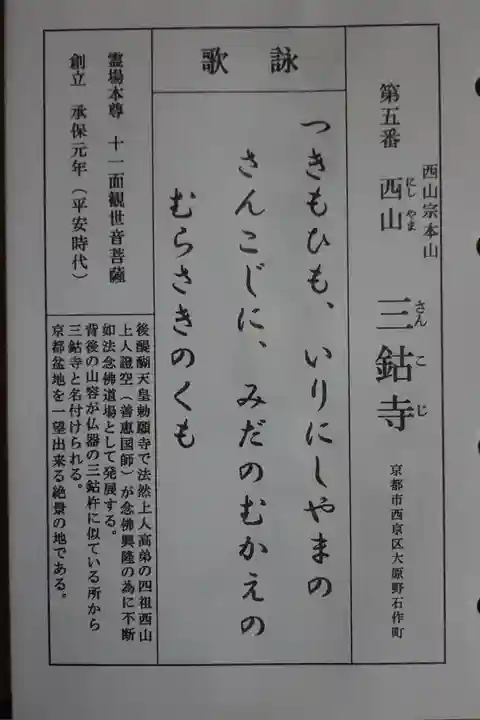 西山宗本山
第五番 西山 三鈷寺
にし やま
さん こ じ
京都市西京区大原野石作町
詠歌
つきもひも、いりにしやまの
さんこじに、みだのむかえの
むらさきのくも
霊場本尊 十一面観世音菩薩
創立 承保元年(平安時代)
後醍醐天皇勅願寺で法然上人高弟の四祖西山
上人證空(善恵国師)が念佛興隆の為に不断
如法念佛道場として発展する。
背後の山容が仏器の三鈷杵に似ている所から
三鈷寺と名付けられる。
京都盆地を一望出来る絶景の地である。